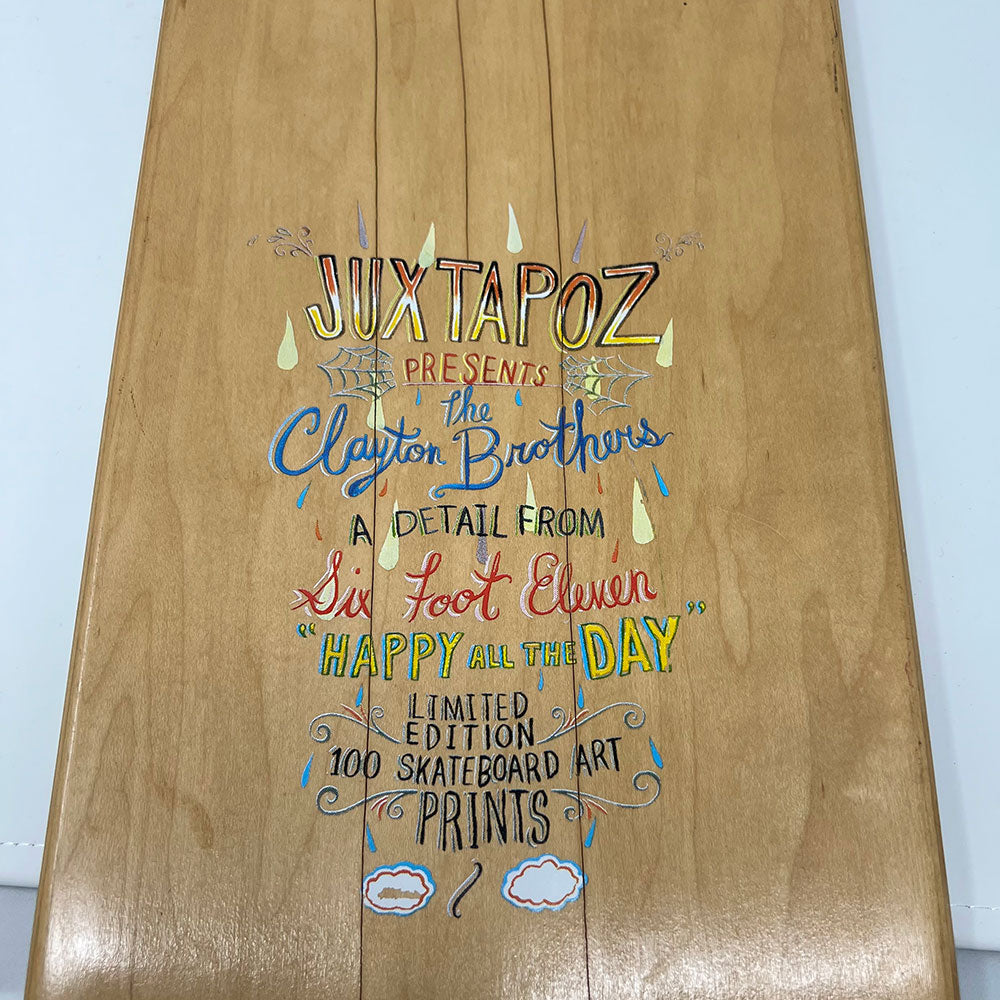 JUXTAPOZ
PRESENTS
the
Clayton Brothers
A DETAIL FROM
Six Foot Eleven
"HAPPY ALL THE DAY"
LIMITED
EDITION
100 SKATEBOARD ART
PRINTS
/